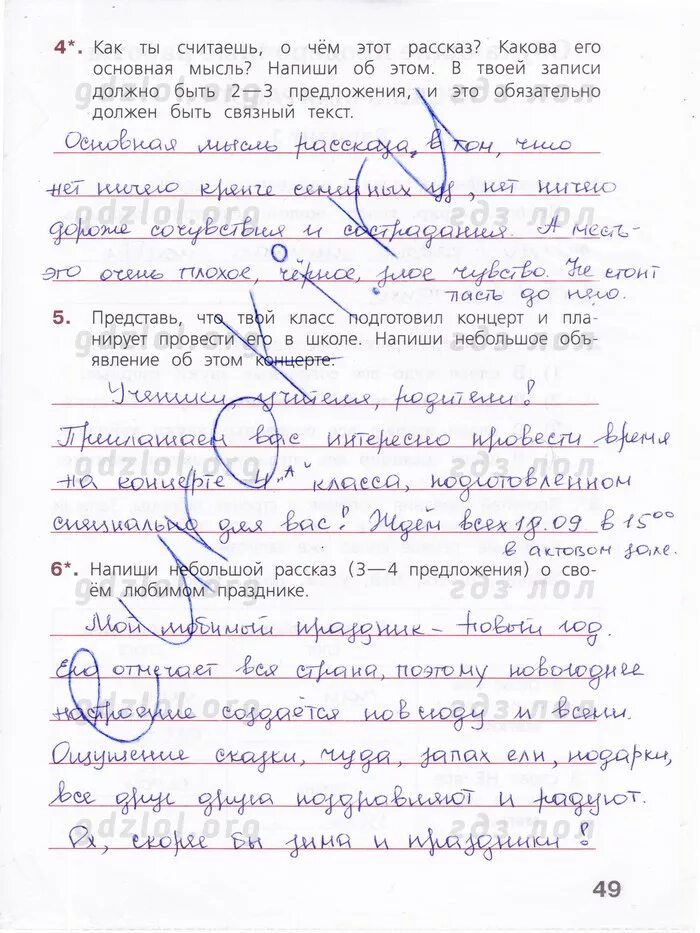 4*. Как ты считаешь, о чём этот рассказ? Какова его
основная мысль? Напиши об этом. В твоей записи
должно быть 2—3 предложения, и это обязательно
должен быть связный текст.
gdzlol.org гдз лол
Основная мысль рассказа в том, что
нет ничего крепче семейных уз, нет ничего
gdzlol.org гдз лол
дороже сочувствия и сострадания. А месть-
это очень плохое, чёрное, злое чувство. Не стоит
пасть до него.
5. Представь, что твой класс подготовил концерт и пла-
нирует провести его в школе. Напиши небольшое объ-
явление об этом концерте.
gdzlol.org гдз лол
Ученики, учителя, родители!
Приглашаем вас интересно провести время
gdzlol.org гдз лол
на концерте 4 „А" класса, подготовленном
специально для вас! Ждём всех 18.09 в 15⁰⁰
в актовом зале.
6*. Напиши небольшой рассказ (3—4 предложения) о сво-
ём любимом празднике.
gdzlol.org гдз лол
Мой любимый праздник - Новый год.
Его отмечает вся страна, поэтому новогоднее
настроение создаётся повсюду и всеми.
gdzlol.org гдз лол
Ощущение сказки, чуда, запах ели, подарки,
все друг друга поздравляют и радуют.
gdzlol.org гдз лол
Ох, скорее бы зима и праздники!
49